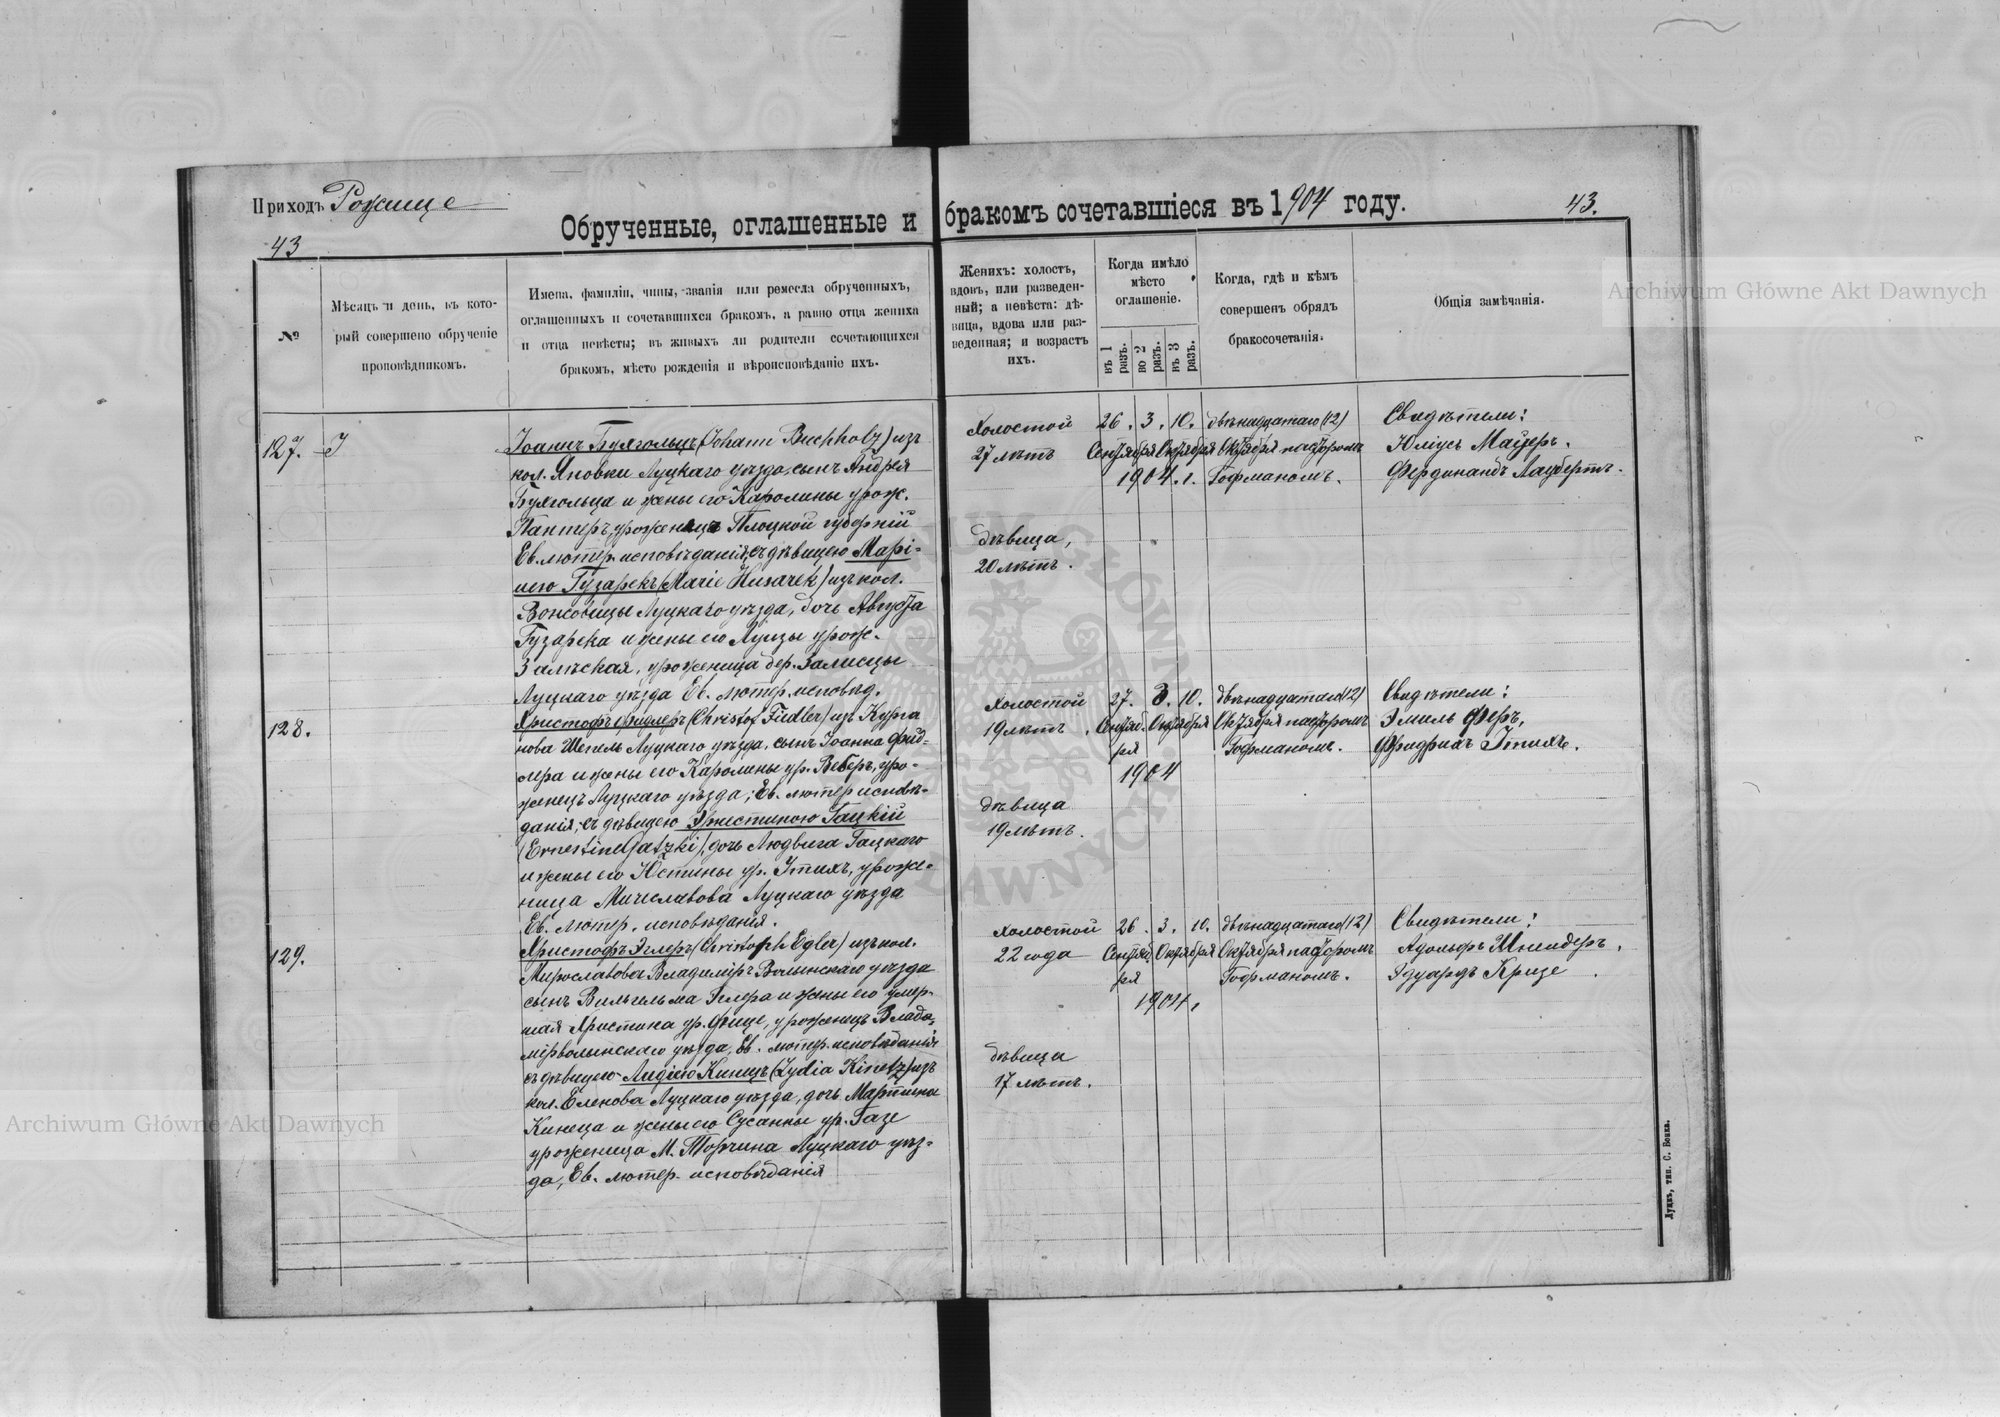 Приходъ Рожище
43
Обрученные, оглашенные и бракомъ сочетавшіеся въ 1904 году.
43.
№
Мѣсяцъ и день, въ кото-
рый совершено обрученіе
проповѣдникомъ.
Имена, фамиліи, чины, званія или ремесла обрученныхъ,
оглашенныхъ и сочетавшихся бракомъ, а равно отца жениха
и отца невѣсты; въ живыхъ ли родители сочетающихся
бракомъ, мѣсто рожденія и вѣроисповѣданіе ихъ.
Женихъ: холостъ,
вдовъ, или разведен-
ный; а невѣста: дѣ-
вица, вдова или раз-
веденная; и возрастъ
ихъ.
Когда имѣло
мѣсто
оглашеніе.
въ 1 разъ.
во 2 разъ.
въ 3 разъ.
Когда, гдѣ и кѣмъ
совершенъ обрядъ
бракосочетанія.
Общія замѣчанія.
127.
Іоаннъ Бухгольцъ (Johann Buchholz) изъ
кол. Яновки Луцкаго уѣзда, сынъ Андрея
Бухгольца и жены его Каролины урож.
Пантеръ, уроженецъ Плоцкой губерніи
Ев. лютер. исповѣданія, съ дѣвицею Марі-
ею Гузарекъ (Marie Husarek) изъ кол.
Луцкаго уѣзда, дочь Августа
Гузарека и жены его Луизы урож.
Залѣская, уроженица дер. Залисцы
Луцкаго уѣзда Ев. лютер. исповѣд.
Холостой
27 лѣтъ
дѣвица,
20 лѣтъ.
26. 3. 10.
Сентября Октября
1904.
двѣнадцатаго (12)
Октября пасторомъ
Гофманомъ.
Свидѣтели:
Юліусъ Майеръ.
Фердинандъ Лаубертъ.
128.
Христофъ Фидлеръ (Christof Fiedler) изъ Курга
нова Шепель Луцкаго уѣзда, сынъ Іоанна Фид-
лера и жены его Каролины ур. Веберъ, уро-
женецъ Луцкаго уѣзда; Ев. лютер исповѣ-
данія, съ дѣвицею Эрнестиною Гацкій
(Ernestine Gatzki), дочь Людвига Гацкаго
и жены его Юстины ур. Утихъ, уроже-
ница Мичеславова Луцкаго уѣзда
Ев. лютер. исповѣданія.
Холостой
19 лѣтъ
дѣвица
19 лѣтъ.
27. 3. 10.
Сентяб. Октября
ря
1904
двѣнадцатаго (12)
Октября пасторомъ
Гофманомъ.
Свидѣтели:
Эмиль Феръ,
Фридрихъ Утихъ.
129.
Христофъ Эглеръ (Christoph Egler) изъ кол.
Мирославова Владиміръ Волынскаго уѣзда
сынъ Вильгельма Эглера и жены его умер-
шая Христина ур. Фице, уроженецъ Влади-
мірволынскаго уѣзда, Ев. лютер. исповѣданія
съ дѣвицею Лидіею Кинецъ (Lydia Kinetz) изъ
кол. Еленова Луцкаго уѣзда, дочь Мартина
Кинеца и жены его Сусанны ур. Газе
уроженица М. Торчина Луцкаго уѣз-
да, Ев. лютер. исповѣданія
холостой
22 года
дѣвица
17 лѣтъ.
26. 3. 10.
Сентяб Октября
ря
1904.
двѣнадцатаго (12)
Октября пасторомъ
Гофманомъ.
Свидѣтели:
Адольфъ Шнейдеръ.
Эдуардъ Кризе
Луцкъ, тип. С. Бонка.
Archiwum Główne Akt Dawnych
Archiwum Główne Akt Dawnych